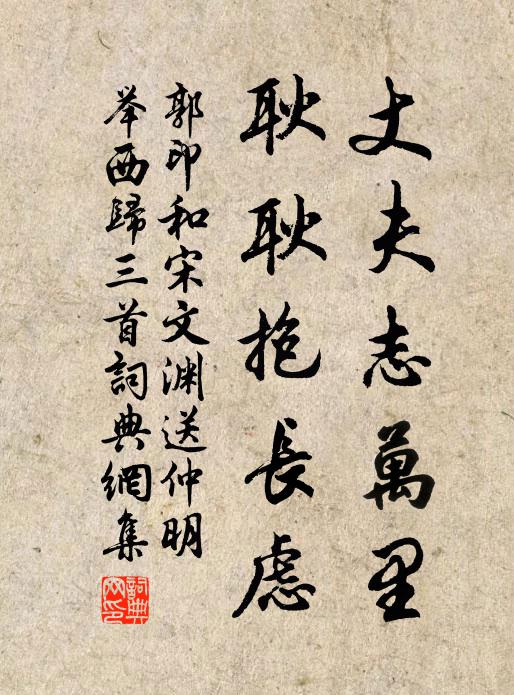 丈夫志萬里
耿耿抱長慮
郭印和宋文渊送仲明
举西歸三首詞典網集
詞典
网印